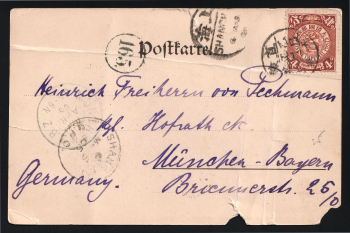 Postkarte
Heinrich Freiherrn von Pechmann
kgl. Hofrath ck.
München-Bayern
Germany. Briennerstr. 26/0